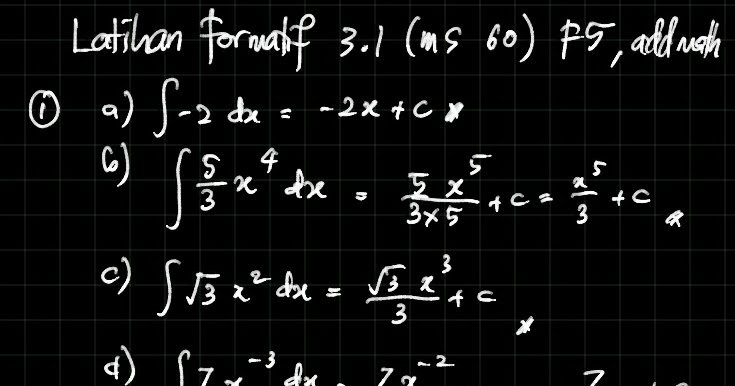 Latihan formatif 3.1 (ms 60) F5, add math
① a) ∫-2 dx = -2x + c
b) ∫ 5/3 x⁴ dx = 5x⁵/(3×5) + c = x⁵/3 + c
c) ∫ √3 x² dx = √3 x³/3 + c
d) ∫ 7x⁻³ dx = 7x⁻² 7